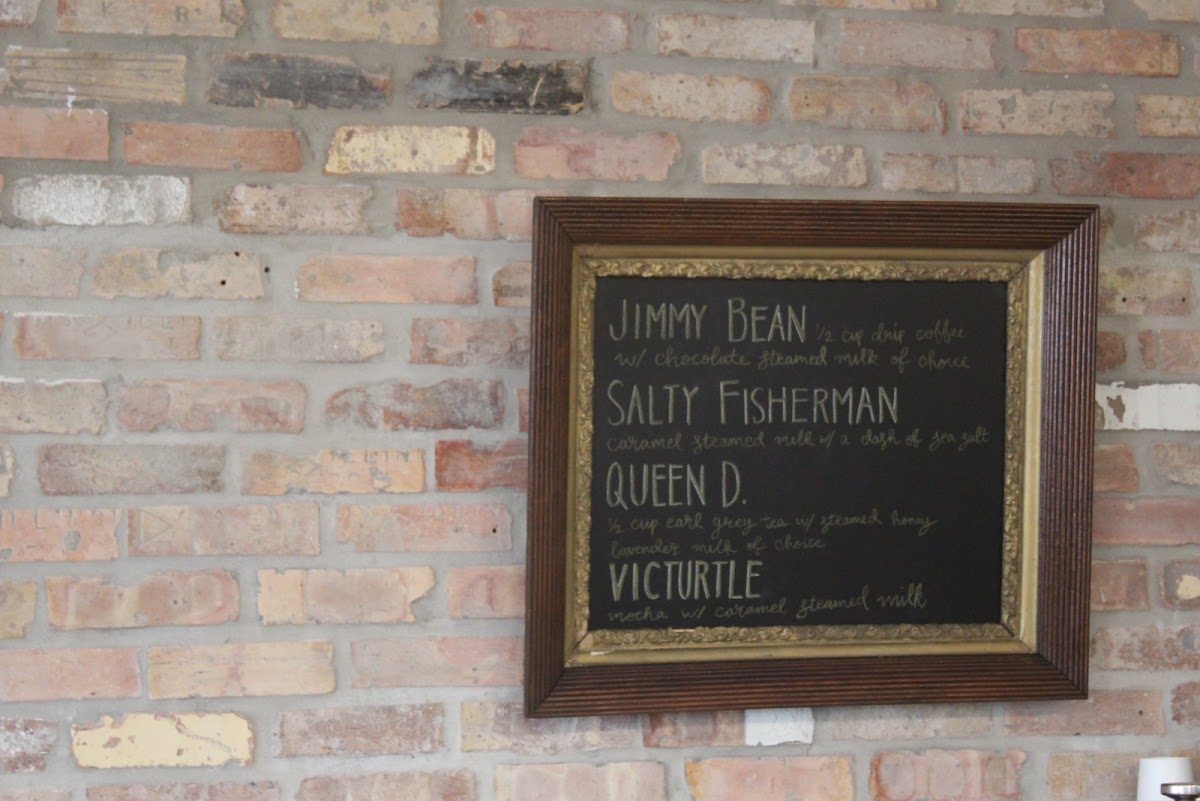 JIMMY BEAN ½ cup drip coffee
w/ chocolate steamed milk of choice
SALTY FISHERMAN
caramel steamed milk w/ a dash of sea salt
QUEEN D.
½ cup earl grey tea w/ steamed honey
lavender milk of choice
VICTURTLE
mocha w/ caramel steamed milk